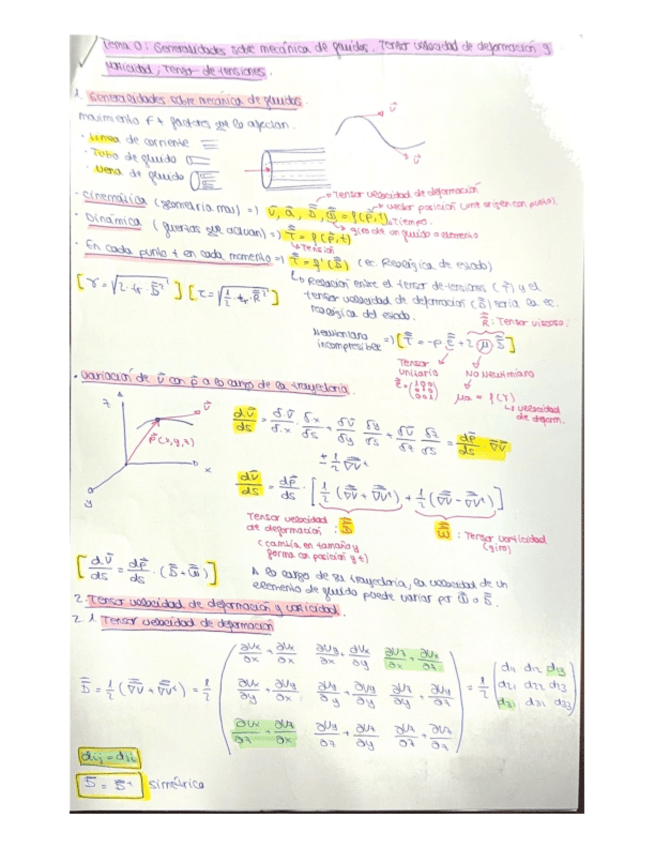 Tema 0: Generalidades sobre mecánica de fluidos. Tensor velocidad de deformación y
vorticidad, Tensor de tensiones.
1. Generalidades sobre mecánica de fluidos.
movimiento f + factores que lo afectan.
· Línea de corriente
· Tubo de fluido
· Vena de fluido
v̄
v̄
→ Tensor velocidad de deformación
· Cinemática (geometría mov) =) v̄, ā, D̿, ω̿ = f(p̄,t)
→ vector posición (une origen con punto).
→ Tiempo.
→ giro de un fluido o elemento
· Dinámica (fuerzas que actúan) =) τ̿ = f(p̄,t)
→ Tensión
· En cada punto + en cada momento =) τ̿ = f'(D̿) (ec. Reológica de estado)
[γ = √(2·tr·D̿²)] [τ = √(½·tr·R̿²)]
↳ Relación entre el tensor de tensiones (τ̿) y el
tensor velocidad de deformación (D̿) sería la ec.
reológica del estado.
R̿: Tensor viscoso.
Newtoniano
incompresible =) [τ̿ = -p·E̿ + 2 μ D̿]
Tensor
unitario
No Newtoniano
μa = f(γ)
↳ velocidad
de deform.
· Variación de v̄ con p̄ a lo largo de la trayectoria.
z
v̄
p̄(x,y,z)
x
y
dv̄/ds = δv̄/δx · δx/δs + δv̄/δy · δy/δs + δv̄/δz · δz/δs = dp̄/ds · ∇v̄
± ½ ∇v̄ᵗ
dv̄/ds = dp̄/ds · [½ (∇v̄ + ∇v̄ᵗ) + ½ (∇v̄ - ∇v̄ᵗ)]
Tensor velocidad
de deformación : D̿
(cambia en tamaño y
forma con posición y t)
ω̿ : Tensor vorticidad
(giro)
[dv̄/ds = dp̄/ds · (D̿ + ω̿)]
A lo largo de su trayectoria, la velocidad de un
elemento de fluido puede variar por ω̿ o D̿.
2. Tensor velocidad de deformación y vorticidad.
2.1 Tensor velocidad de deformación
D̿ = ½ (∇v̄ + ∇v̄ᵗ) = ½
∂Vx/∂x + ∂Vx/∂x ∂Vy/∂x + ∂Vx/∂y ∂Vz/∂x + ∂Vx/∂z
∂Vx/∂y + ∂Vy/∂x ∂Vy/∂y + ∂Vy/∂y ∂Vz/∂y + ∂Vy/∂z
∂Vx/∂z + ∂Vz/∂x ∂Vy/∂z + ∂Vz/∂y ∂Vz/∂z + ∂Vz/∂z
= ½
d12 d13
d21 d22 d23
d31 d33
dij = dji
D̿ = D̿ᵗ simétrica